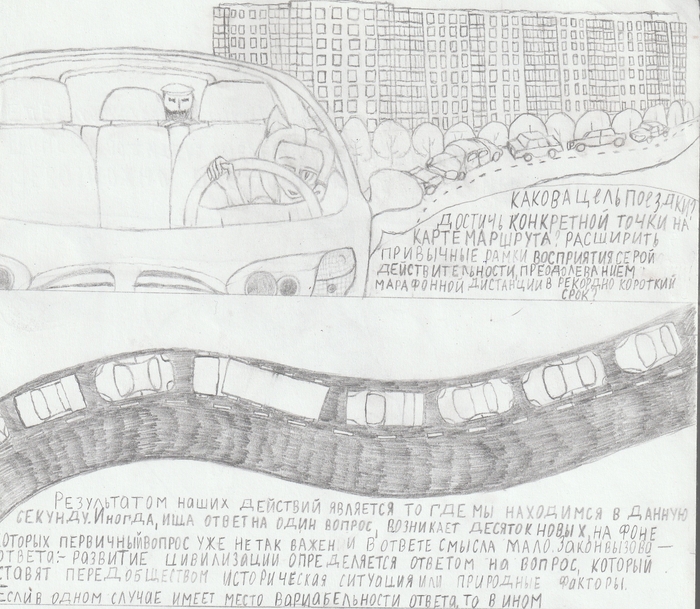 КАКОВА ЦЕЛЬ ПОЕЗДКИ?
ДОСТИЧЬ КОНКРЕТНОЙ ТОЧКИ НА
КАРТЕ МАРШРУТА? РАСШИРИТЬ
ПРИВЫЧНЫЕ РАМКИ ВОСПРИЯТИЯ СЕРОЙ
ДЕЙСТВИТЕЛЬНОСТИ, ПРЕОДОЛЕВАНИЕМ
МАРАФОННОЙ ДИСТАНЦИИ В РЕКОРДНО КОРОТКИЙ
СРОК?
РЕЗУЛЬТАТОМ НАШИХ ДЕЙСТВИЙ ЯВЛЯЕТСЯ ТО ГДЕ МЫ НАХОДИМСЯ В ДАННУЮ
СЕКУНДУ. ИНОГДА, ИЩА ОТВЕТ НА ОДИН ВОПРОС, ВОЗНИКАЕТ ДЕСЯТОК НОВЫХ, НА ФОНЕ
КОТОРЫХ ПЕРВИЧНЫЙ ВОПРОС УЖЕ НЕ ТАК ВАЖЕН И В ОТВЕТЕ СМЫСЛА МАЛО. ЗАКОН ВЫЗОВА —
ОТВЕТА:- РАЗВИТИЕ ЦИВИЛИЗАЦИИ ОПРЕДЕЛЯЕТСЯ ОТВЕТОМ НА ВОПРОС, КОТОРЫЙ
СТАВЯТ ПЕРЕД ОБЩЕСТВОМ ИСТОРИЧЕСКАЯ СИТУАЦИЯ ИЛИ ПРИРОДНЫЕ ФАКТОРЫ.
ЕСЛИ В ОДНОМ СЛУЧАЕ ИМЕЕТ МЕСТО ВАРИАБЕЛЬНОСТИ ОТВЕТА, ТО В ИНОМ